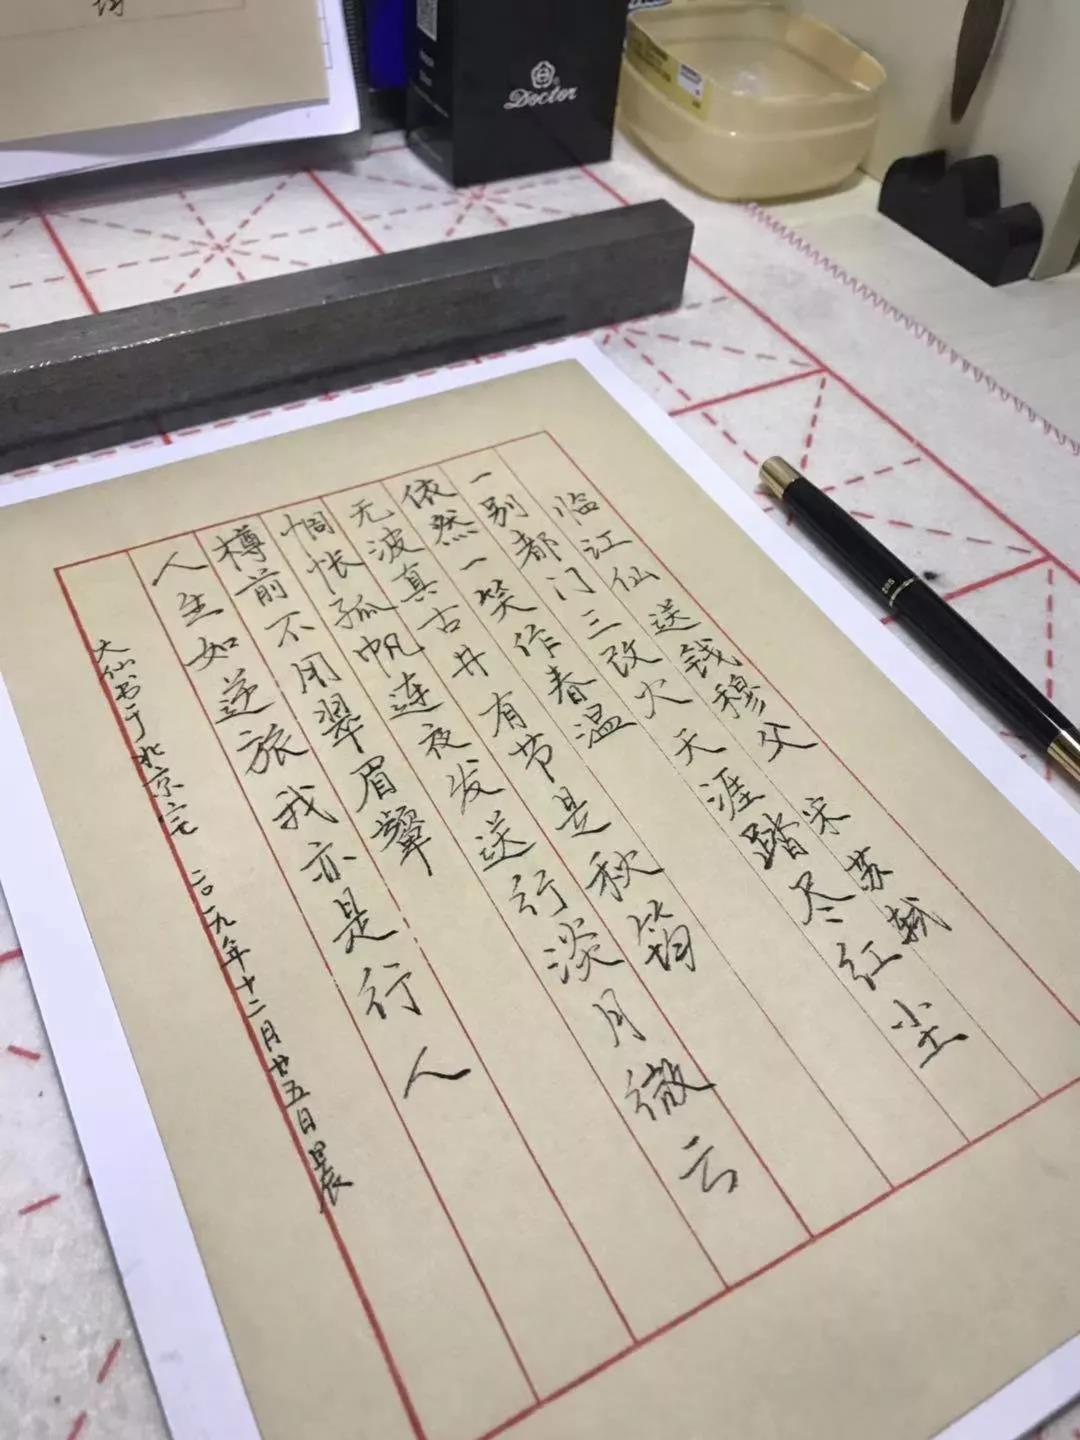 临江仙 送钱穆父 宋 苏轼
一别都门三改火 天涯踏尽红尘
依然一笑作春温
无波真古井 有节是秋筠
惆怅孤帆连夜发 送行淡月微云
樽前不用翠眉颦
人生如逆旅 我亦是行人
大仙书于北京宅 二〇一九年十二月廿五日晨
Doctor